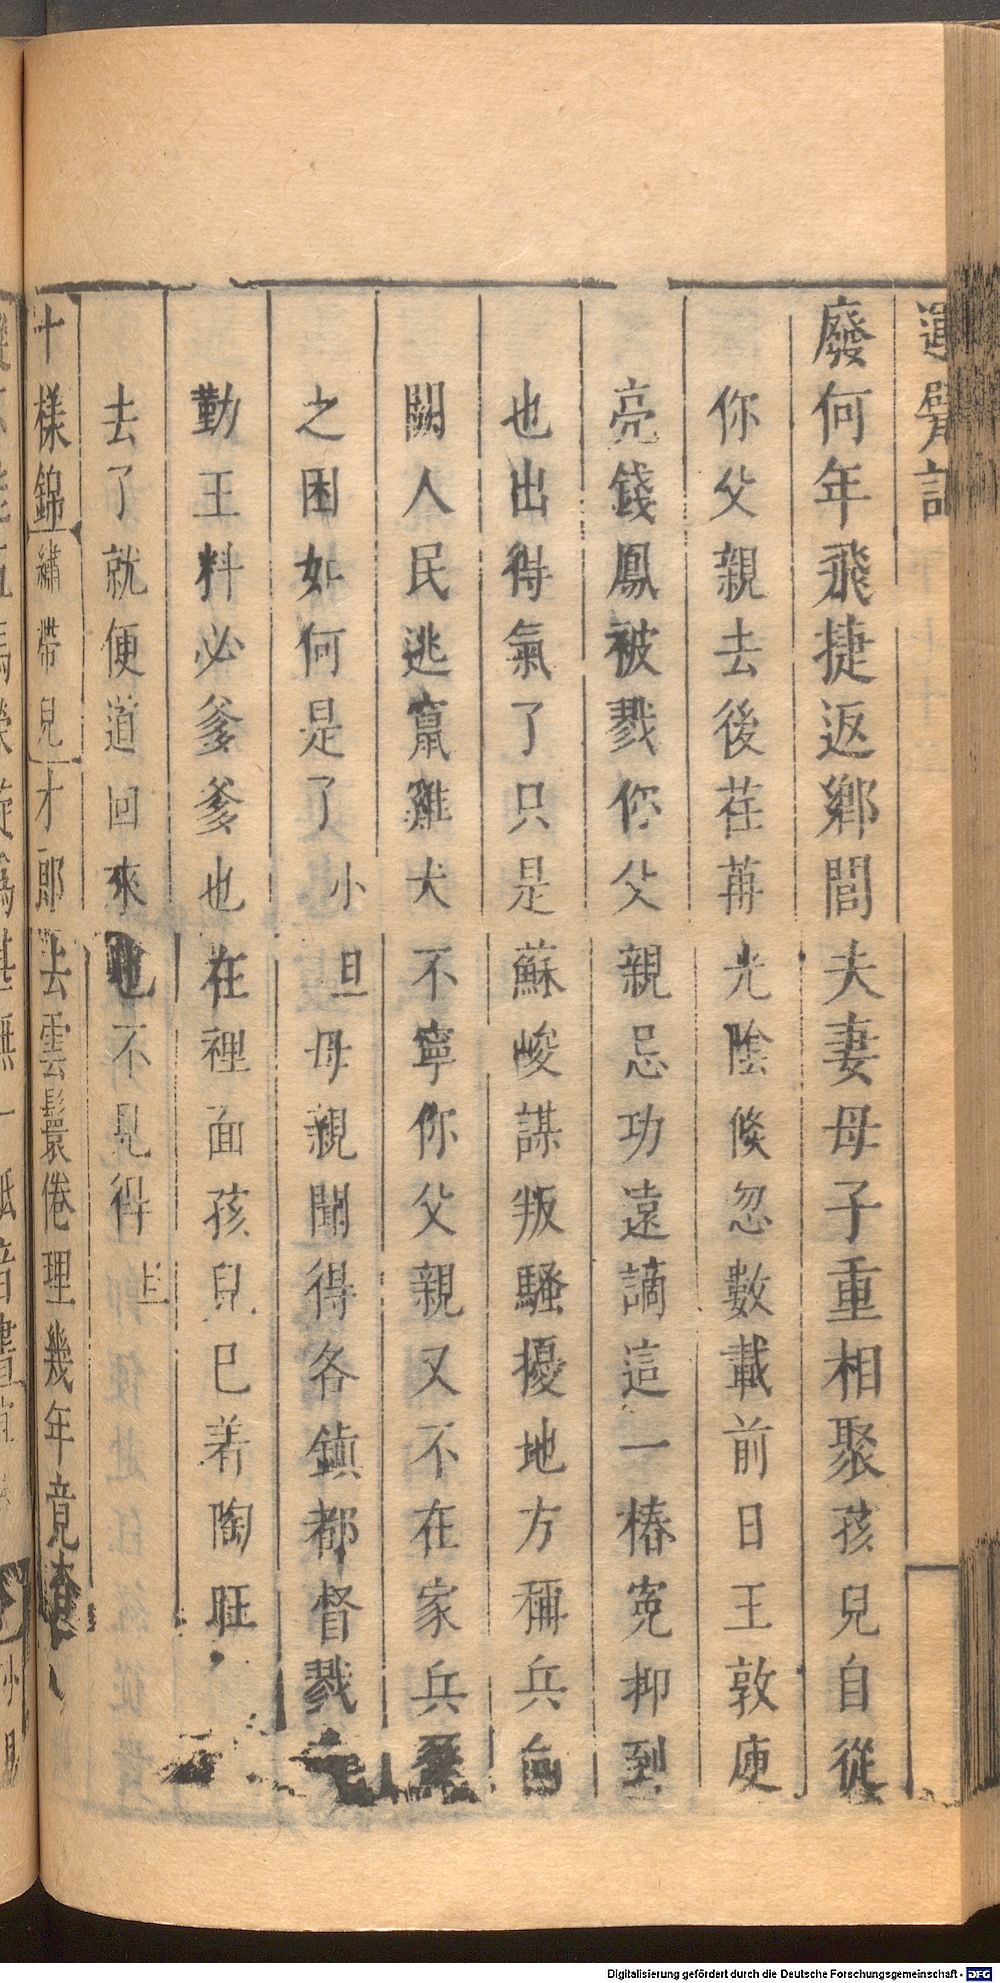 運甓記
廢何年飛捷返鄉閭夫妻母子重相聚孩兒自從
你父親去後荏苒光陰倐忽數載前日王敦庾
亮錢鳳被戮你父親忌功遠謫這一樁寃抑到
也出得氣了只是蘇峻謀叛騷擾地方稱兵向
闕人民逃竄雞犬不寧你父親又不在家兵
之困如何是了小旦母親聞得各鎮都督戮
勤王料必爹爹也在裡面孩兒已着陶旺
去了就便道回來也不見得
十樣錦繡帶兒才郎去雲鬟倦理幾年竟
Digitalisierung gefördert durch die Deutsche Forschungsgemeinschaft - DFG